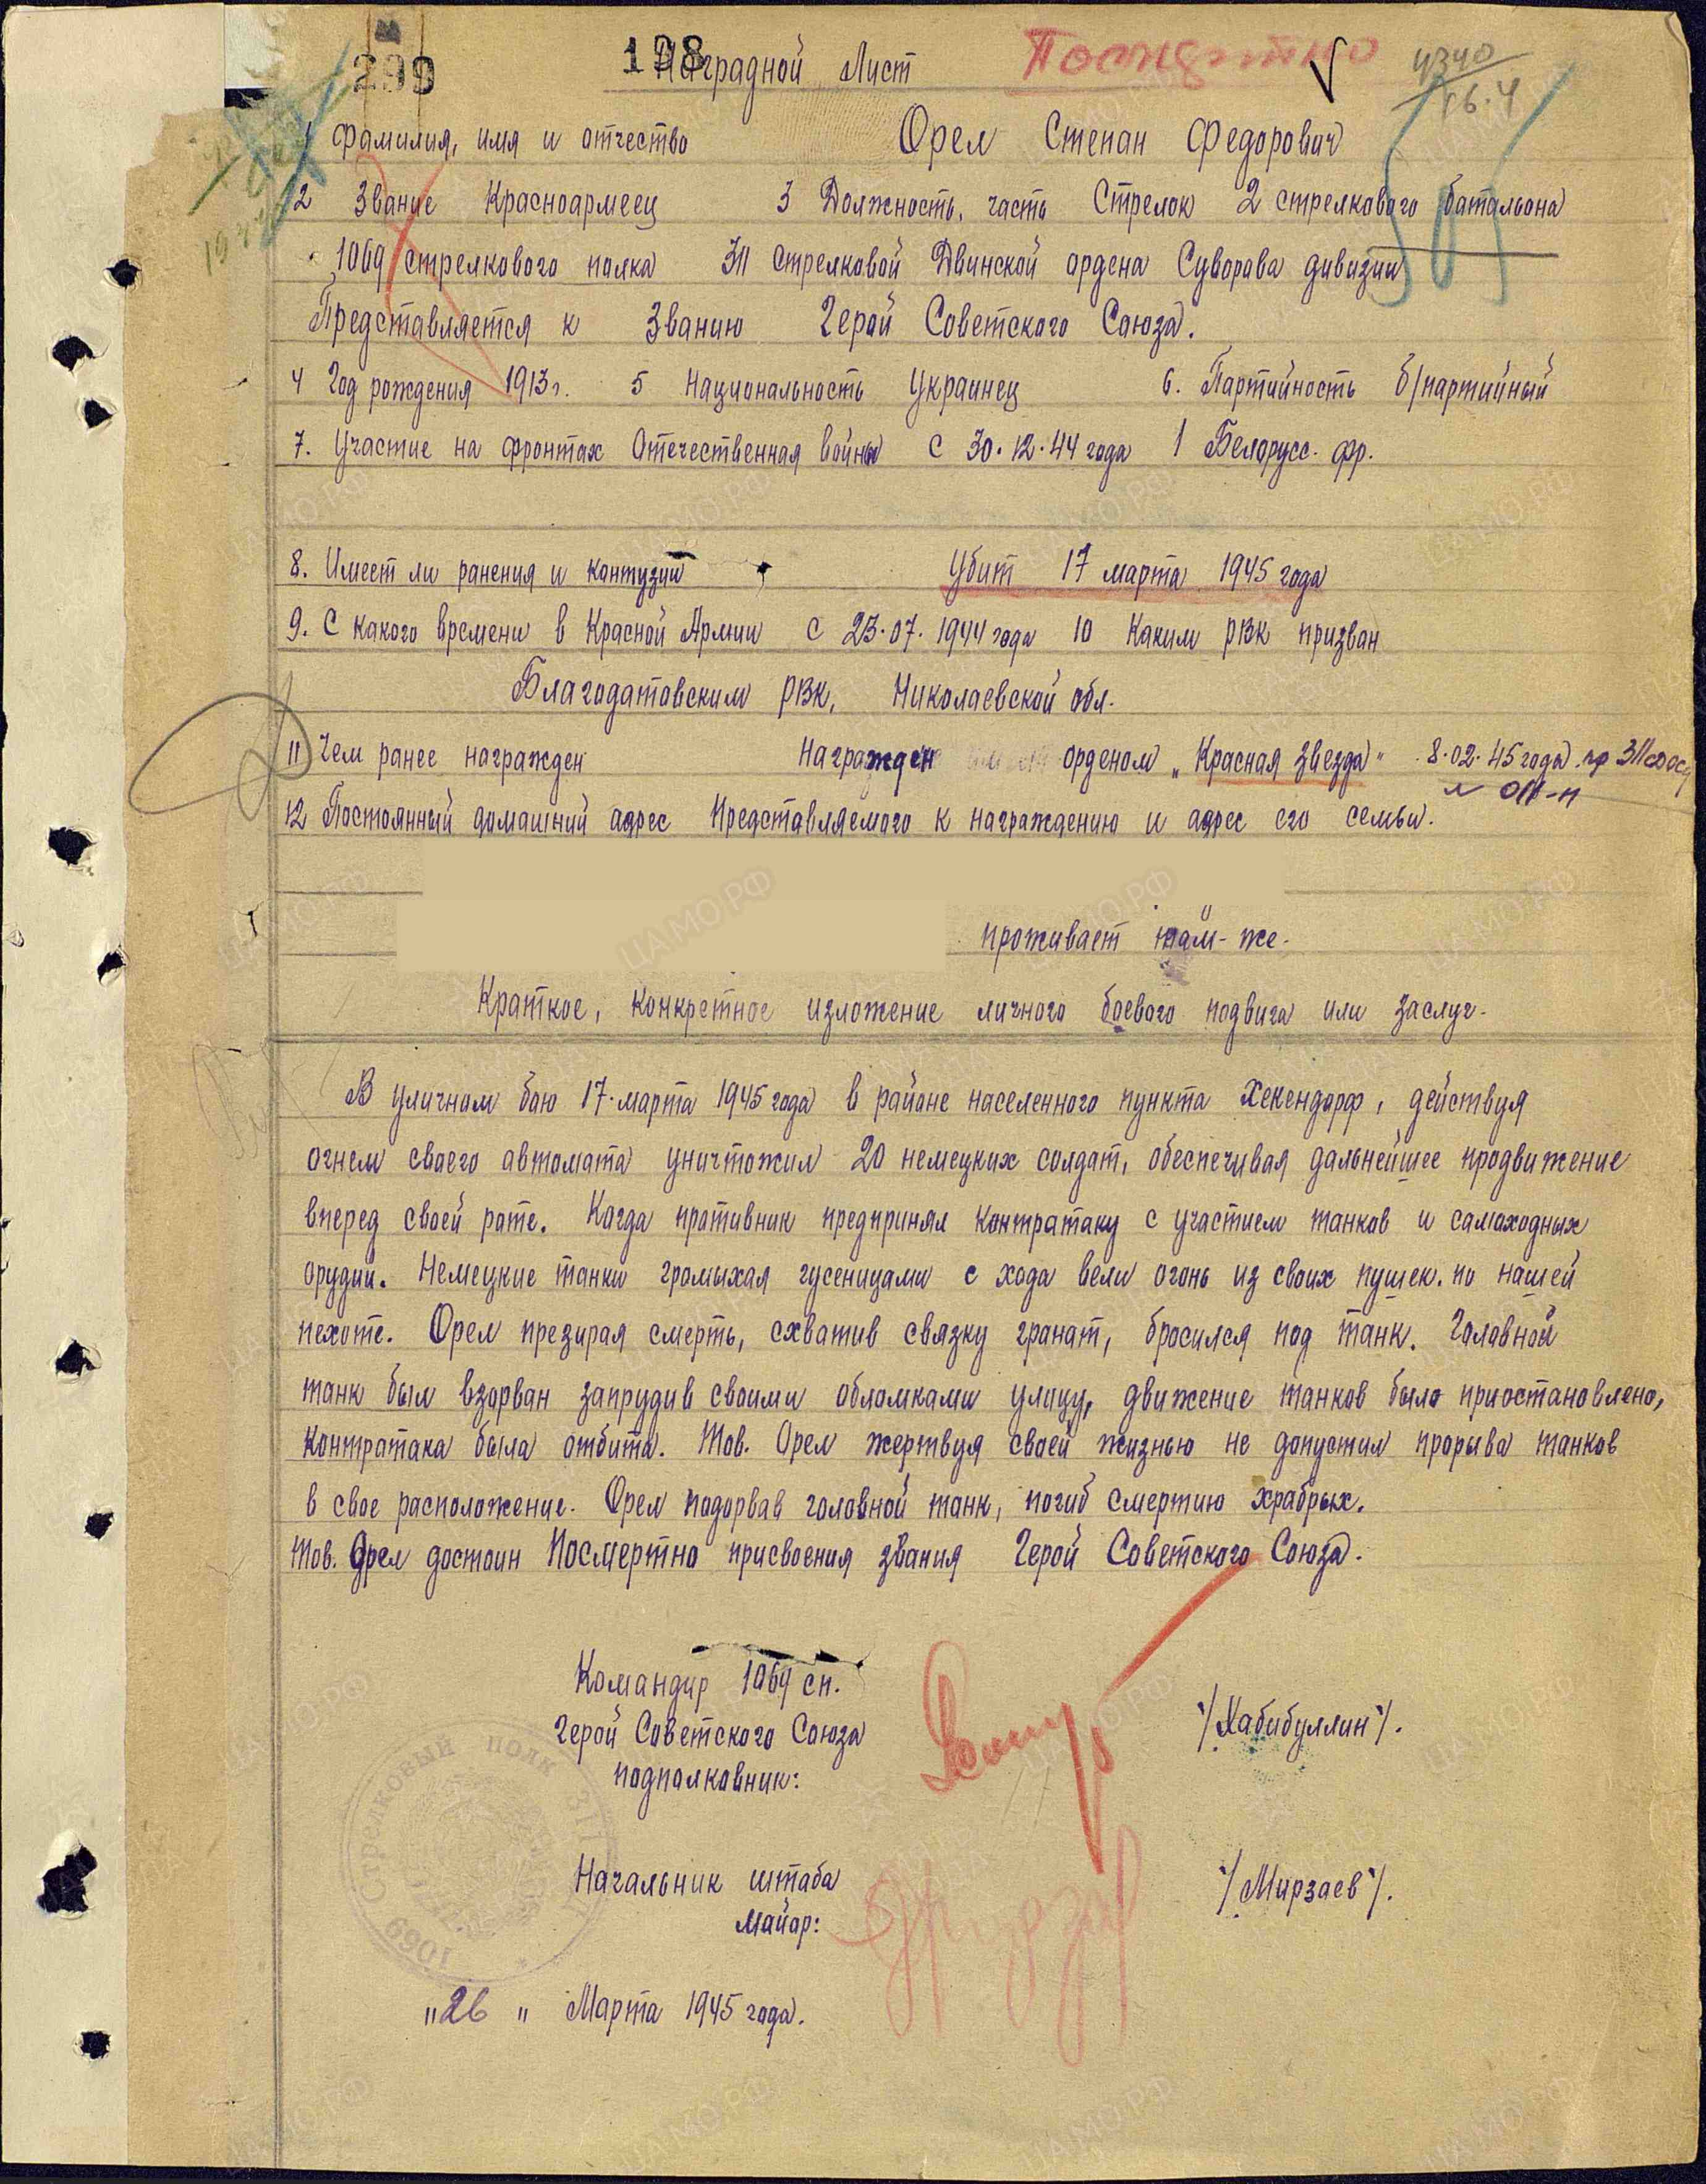 299
198
Наградной Лист
Посмертно
4340
16.4
1 Фамилия, имя и отчество Орел Степан Федорович
2 Звание Красноармеец 3 Должность, часть Стрелок 2 стрелкового батальона
1069 стрелкового полка 311 стрелковой Двинской ордена Суворова дивизии
Представляется к Званию Герой Советского Союза.
4 Год рождения 1913г. 5 Национальность Украинец 6. Партийность б/партийный
7. Участие на фронтах Отечественная войны с 30.12.44 года 1 Белорусс. фр.
8. Имеет ли ранения и контузии Убит 17 марта 1945 года
9. С какого времени в Красной Армии с 23.07.1944 года 10 Каким РВК призван
Благодатовским РВК, Николаевской обл.
11 Чем ранее награжден Награжден орденом „Красная Звезда" 8.02.45 года. пр 311сд
№ 011-н
12 Постоянный домашний адрес Представляемого к награждению и адрес его семьи.
проживает там-же.
Краткое, конкретное изложение личного боевого подвига или заслуг.
В уличном бою 17.марта 1945 года в районе населенного пункта Хекендорф, действуя
огнем своего автомата уничтожил 20 немецких солдат, обеспечивая дальнейшее продвижение
вперед своей роте. Когда противник предпринял контратаку с участием танков и самоходных
орудий. Немецкие танки громыхая гусеницами с хода вели огонь из своих пушек. по нашей
пехоте. Орел презирая смерть, схватив связку гранат, бросился под танк. Головной
танк был взорван запрудив своими обломками улицу, движение танков было приостановлено,
контратака была отбита. Тов. Орел жертвуя своей жизнью не допустил прорыва танков
в свое расположение. Орел подорвав головной танк, погиб смертию храбрых.
Тов. Орел достоин Посмертно присвоения звания Герой Советского Союза.
Командир 1069 сп.
Герой Советского Союза
подполковник: /Хабибуллин/.
Начальник штаба
майор: /Мирзаев/.
1069 Стрелковый полк 311
„26" Марта 1945 года.